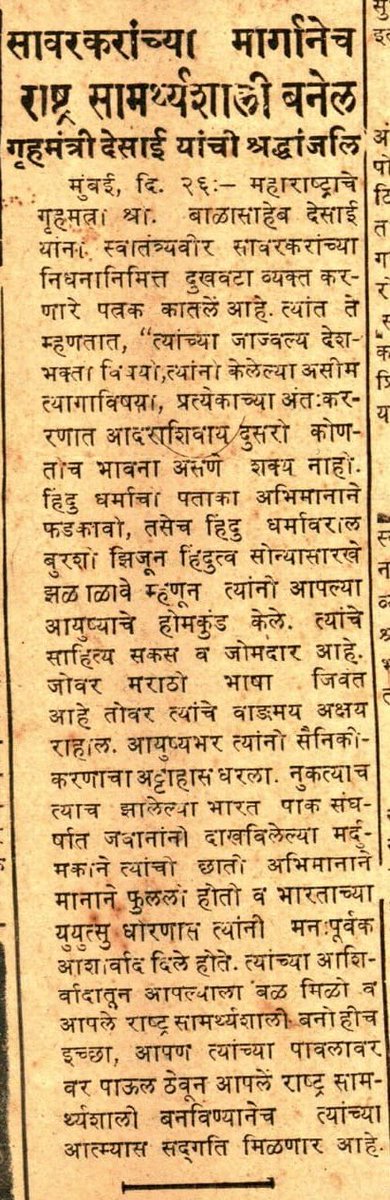 सावरकरांच्या मार्गानेच
राष्ट्र सामर्थ्यशाली बनेल
गृहमंत्री देसाई यांची श्रद्धांजलि
मुंबई, दि. २६:– महाराष्ट्राचे
गृहमंत्री श्री. बाळासाहेब देसाई
यांनी स्वातंत्र्यवीर सावरकरांच्या
निधनानिमित्त दुखवटा व्यक्त कर-
णारे पत्रक काढलें आहे. त्यांत ते
म्हणतात, “त्यांच्या जाज्वल्य देश-
भक्ती विषयी, त्यांनी केलेल्या असीम
त्यागाविषयी, प्रत्येकाच्या अंतःकर-
रणात आदराशिवाय दुसरी कोण-
तीच भावना असणे शक्य नाही.
हिंदु धर्माची पताका अभिमानाने
फडकावी, तसेच हिंदु धर्मावरील
बुरशी झिजून हिंदुत्व सोन्यासारखे
झळाळावे म्हणून त्यांनी आपल्या
आयुष्याचे होमकुंड केले. त्यांचे
साहित्य सकस व जोमदार आहे.
जोवर मराठी भाषा जिवंत
आहे तोवर त्यांचे वाङमय अक्षय
राहील. आयुष्यभर त्यांनी सैनिकी-
करणाचा अट्टाहास धरला. नुकत्याच
त्याच झालेल्या भारत पाक संघ-
र्षात जवानांनी दाखविलेल्या मर्दु-
मकीने त्यांची छाती अभिमानाने
मानाने फुलली होती व भारताच्या
युयुत्सु धोरणास त्यांनी मनःपूर्वक
आशीर्वाद दिले होते. त्यांच्या आशि-
र्वादातून आपल्याला बळ मिळो व
आपले राष्ट्र सामर्थ्यशाली बनो हीच
इच्छा, आपण त्यांच्या पावलावर
वर पाऊल ठेवून आपलें राष्ट्र साम-
र्थ्यशाली बनविण्यानेच त्यांच्या
आत्म्यास सद्‌गति मिळणार आहे.